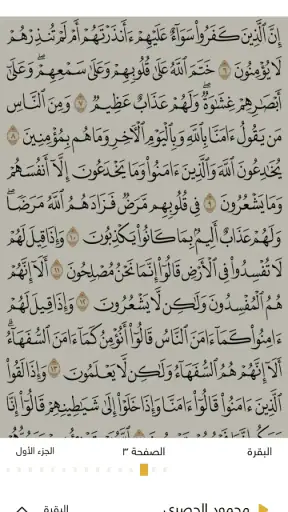 إِنَّ ٱلَّذِينَ كَفَرُوا۟ سَوَآءٌ عَلَيْهِمْ ءَأَنذَرْتَهُمْ أَمْ لَمْ تُنذِرْهُمْ
لَا يُؤْمِنُونَ ٦ خَتَمَ ٱللَّهُ عَلَىٰ قُلُوبِهِمْ وَعَلَىٰ سَمْعِهِمْ ۖ وَعَلَىٰٓ
أَبْصَٰرِهِمْ غِشَٰوَةٌ ۖ وَلَهُمْ عَذَابٌ عَظِيمٌ ٧ وَمِنَ ٱلنَّاسِ
مَن يَقُولُ ءَامَنَّا بِٱللَّهِ وَبِٱلْيَوْمِ ٱلْءَاخِرِ وَمَا هُم بِمُؤْمِنِينَ ٨
يُخَٰدِعُونَ ٱللَّهَ وَٱلَّذِينَ ءَامَنُوا۟ وَمَا يَخْدَعُونَ إِلَّآ أَنفُسَهُمْ
وَمَا يَشْعُرُونَ ٩ فِى قُلُوبِهِم مَّرَضٌ فَزَادَهُمُ ٱللَّهُ مَرَضًا ۖ
وَلَهُمْ عَذَابٌ أَلِيمٌۢ بِمَا كَانُوا۟ يَكْذِبُونَ ١٠ وَإِذَا قِيلَ لَهُمْ
لَا تُفْسِدُوا۟ فِى ٱلْأَرْضِ قَالُوٓا۟ إِنَّمَا نَحْنُ مُصْلِحُونَ ١١ أَلَآ إِنَّهُمْ
هُمُ ٱلْمُفْسِدُونَ وَلَٰكِن لَّا يَشْعُرُونَ ١٢ وَإِذَا قِيلَ لَهُمْ
ءَامِنُوا۟ كَمَآ ءَامَنَ ٱلنَّاسُ قَالُوٓا۟ أَنُؤْمِنُ كَمَآ ءَامَنَ ٱلسُّفَهَآءُ ۗ
أَلَآ إِنَّهُمْ هُمُ ٱلسُّفَهَآءُ وَلَٰكِن لَّا يَعْلَمُونَ ١٣ وَإِذَا لَقُوا۟
ٱلَّذِينَ ءَامَنُوا۟ قَالُوٓا۟ ءَامَنَّا وَإِذَا خَلَوْا۟ إِلَىٰ شَيَٰطِينِهِمْ قَالُوٓا۟ إِنَّا
البقرة
الصفحة ٣
الجزء الأول
محمود الحصري
البقرة